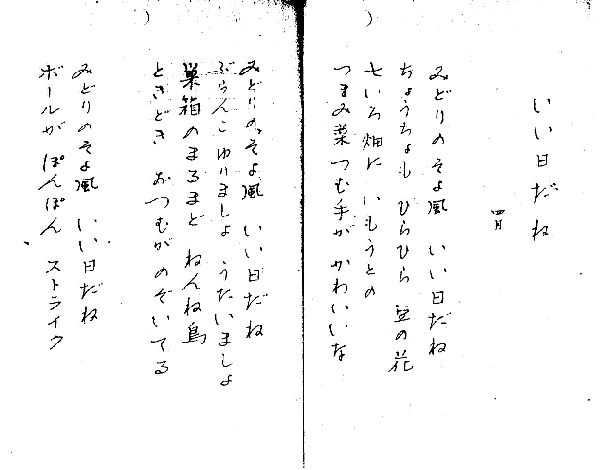 いい日だね
四月
みどりのそよ風 いい日だね
ちょうちょも ひらひら 豆の花
七いろ畑に いもうとの
つまみ菜つむ手が かわいいな
みどりのそよ風 いい日だね
ぶらんこゆりましょ うたいましょ
巣箱のまるまど ねんね鳥
ときどき おつむがのぞいてる
みどりのそよ風 いい日だね
ボールが ぽんぽん ストライク